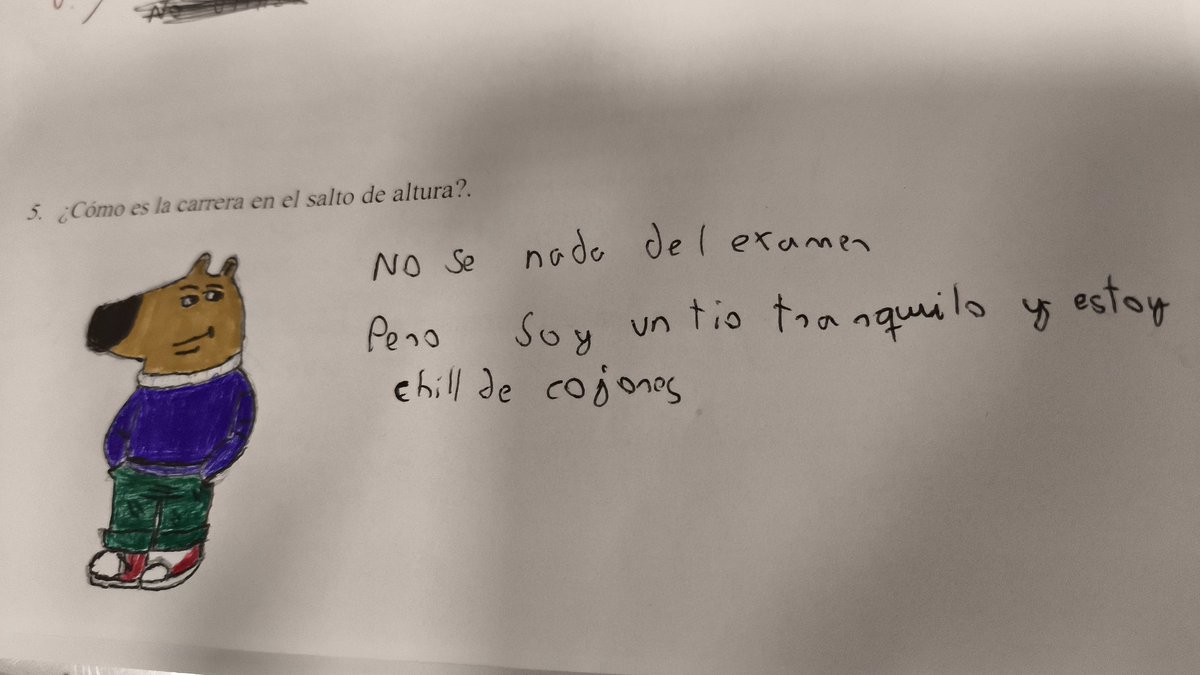 5. ¿Cómo es la carrera en el salto de altura?.
No se nada del examen
Pero soy un tio tranquilo y estoy
chill de cojones